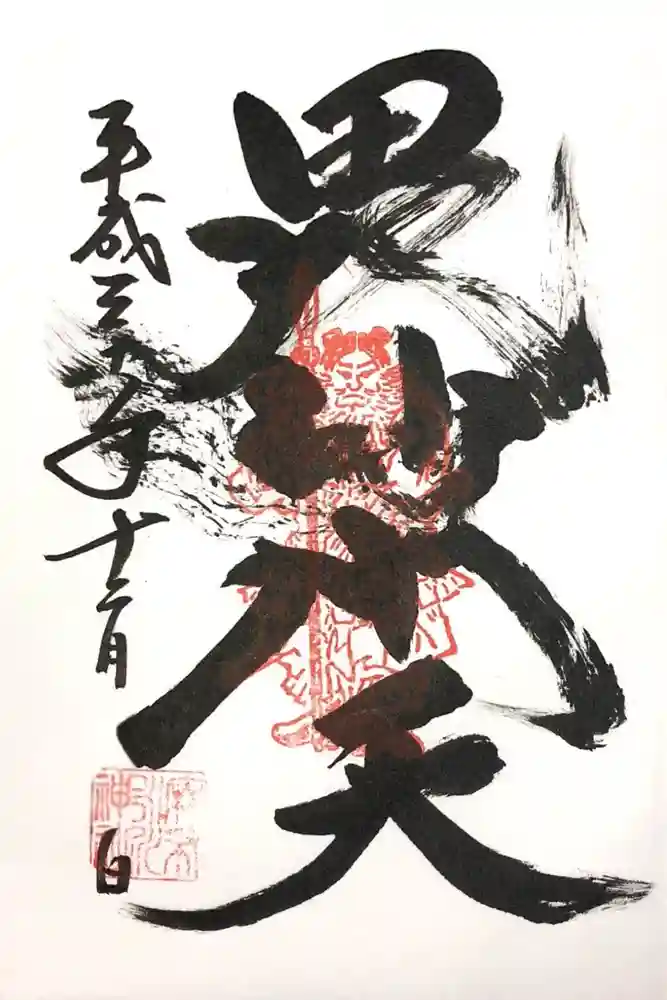 毘沙門天
平成三十年十二月 日